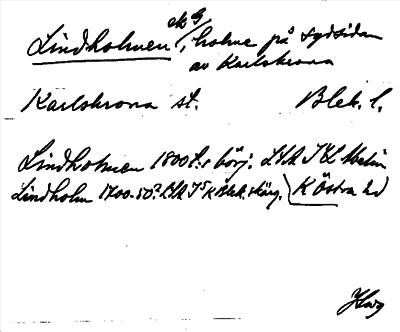 Lindholmen ek G/, holme på sydsidan
av Karlskrona
Karlskrona st. Blek. l.
Lindholmen 1800 t.s börj. LSA
Lindholm 1700-50? LSA K Blek. skärg. K Östra hd